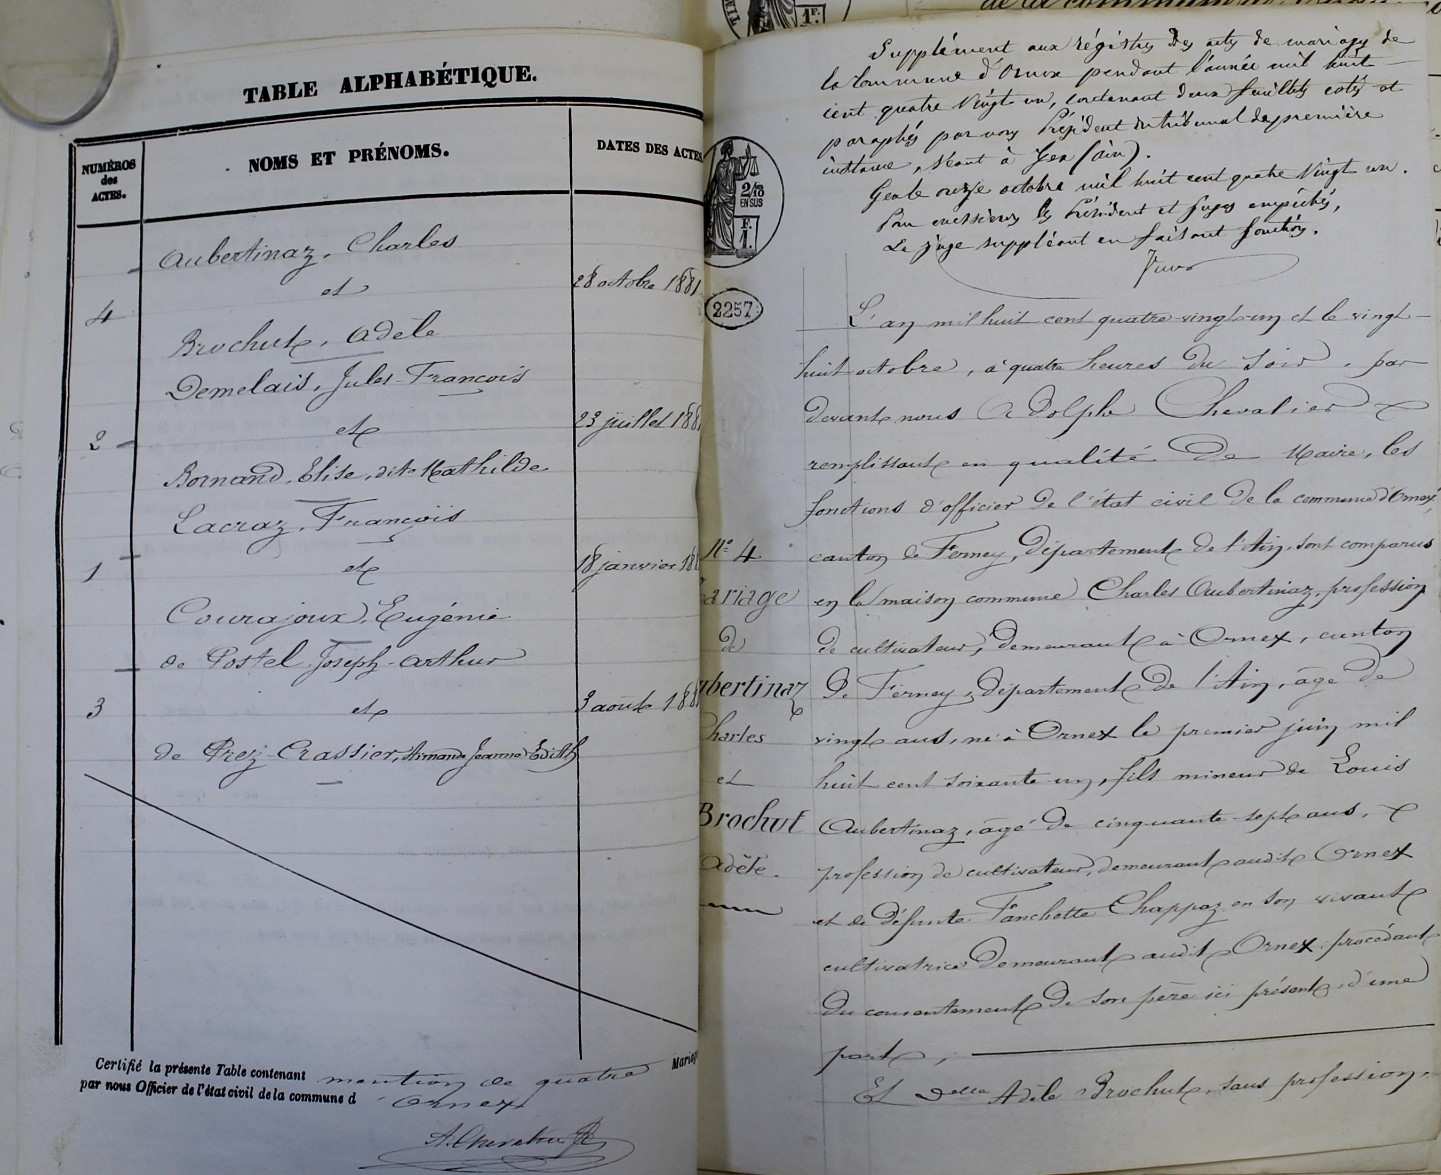 TABLE ALPHABÉTIQUE.
NUMÉROS
des
ACTES.
NOMS ET PRÉNOMS.
DATES DES ACTES
Aubertinaz, Charles
et
28 octobre 1881
4
Brochut, Adèle
Demelais, Jules-François
et
23 juillet 188
2
Bornand, Elise, dite Mathilde
Lacraz, François
et
18 janvier 18
1
Courajoux, Eugénie
de Postel, Joseph-Arthur
et
3 août 188
3
de Prez-Crassier, Armande Jeanne Edith
Certifié la présente Table contenant mention de quatre Mariag
par nous Officier de l'état civil de la commune d'Ornex
A. Chevalier
1F.
Supplément aux régistres des actes de mariages de
la Commune d'Ornex pendant l'année mil huit
cent quatre vingt un, contenant deux feuillets cotés et
paraphés par nous Président du tribunal de première
instance, séant à Gex (Ain).
Gex le onze octobre mil huit cent quatre vingt un.
Pour messieurs les Président et juges empêchés,
Le juge suppléant en faisant fonctions.
2/10
EN SUS
F.
1.
2257
L'an mil huit cent quatre-vingt-un et le vingt-
huit octobre, à quatre heures du soir, par
devant nous Adolphe Chevalier
remplissant en qualité de Maire, les
fonctions d'officier de l'état civil de la commune d'Ornex,
canton de Ferney, département de l'Ain, sont comparus
en la maison commune Charles Aubertinaz, profession
de cultivateur, demeurant à Ornex, canton
de Ferney, département de l'Ain, âgé de
vingt ans, né à Ornex le premier juin mil
huit cent soixante un, fils mineur de Louis
Aubertinaz, âgé de cinquante-sept ans,
profession de cultivateur, demeurant audit Ornex
et de défunte Fanchette Chappaz en son vivant
cultivatrice demeurant audit Ornex, procédant
du consentement de son père ici présent, d'une
part;
Et Delle Adèle Brochut, sans profession,
N° 4
ariage
de
ubertinaz
Charles
et
Brochut
Adèle.